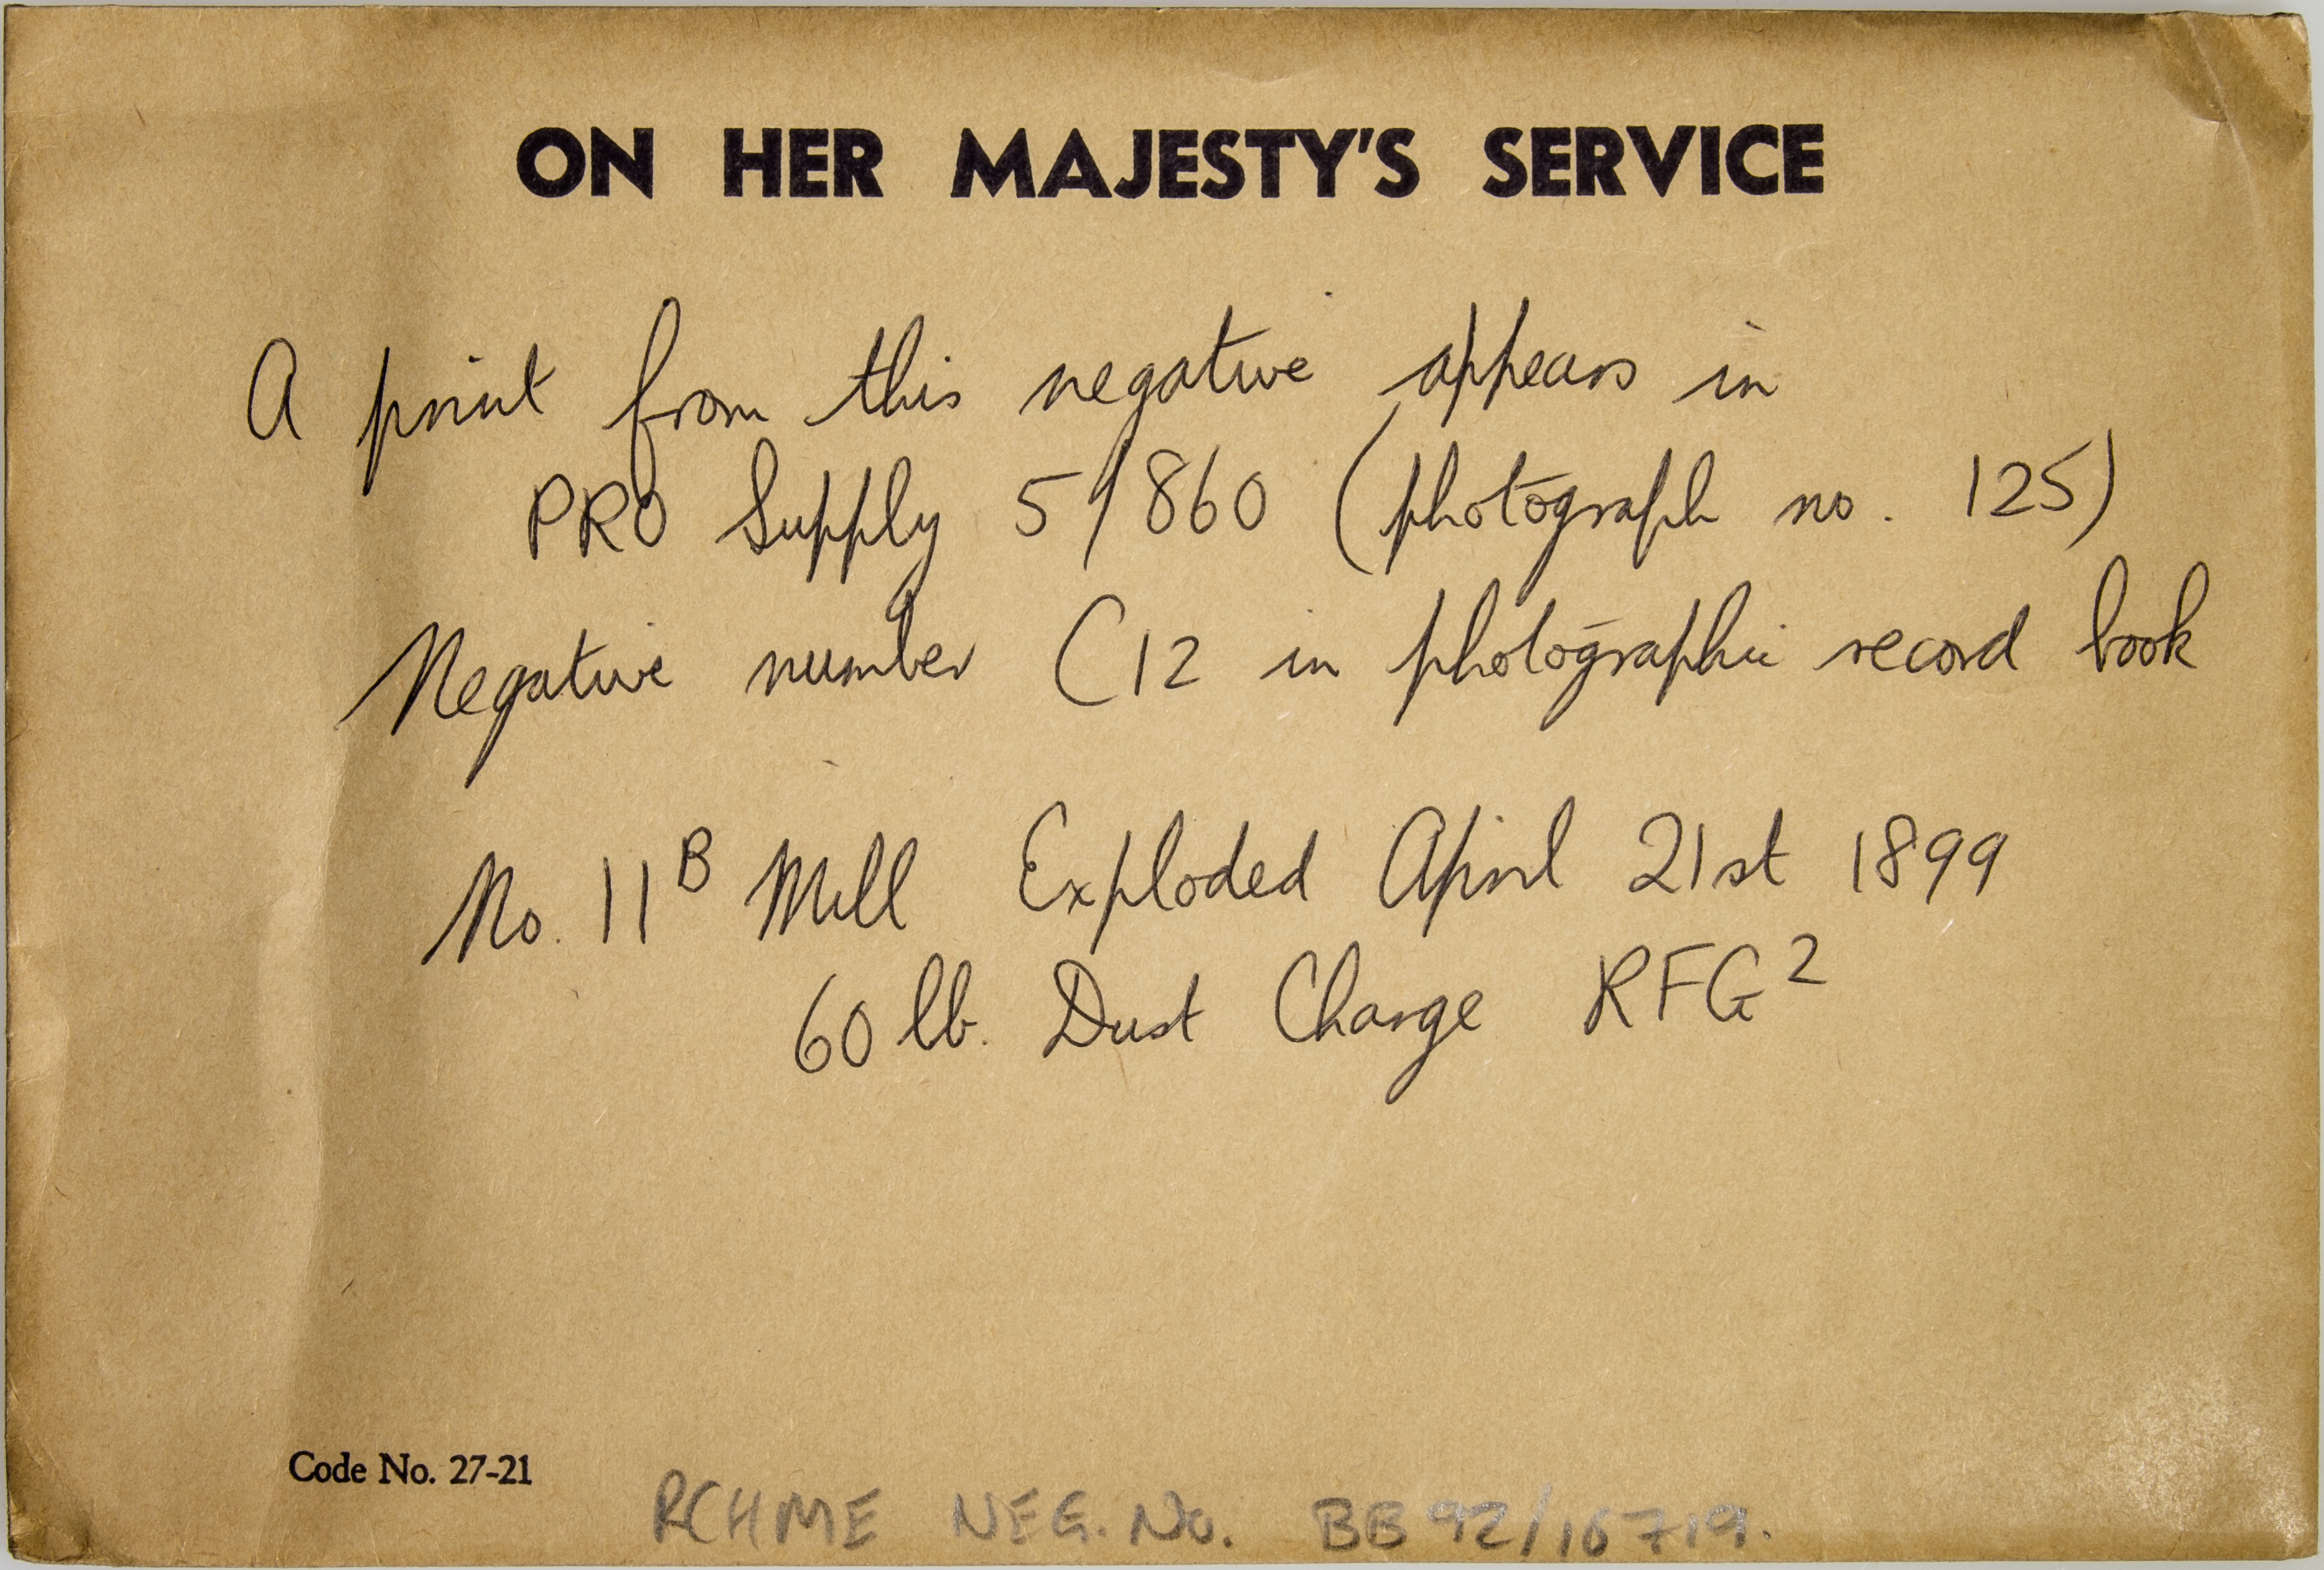 ON HER MAJESTY'S SERVICE
A print from this negative appears in
PRO Supply 5/860 (photograph no. 125)
Negative number C12 in photographic record book
No. 11ᴮ Mill Exploded April 21st 1899
60 lb. Dust Charge RFG²
Code No. 27-21
RCHME NEG. No. BB92/16719.